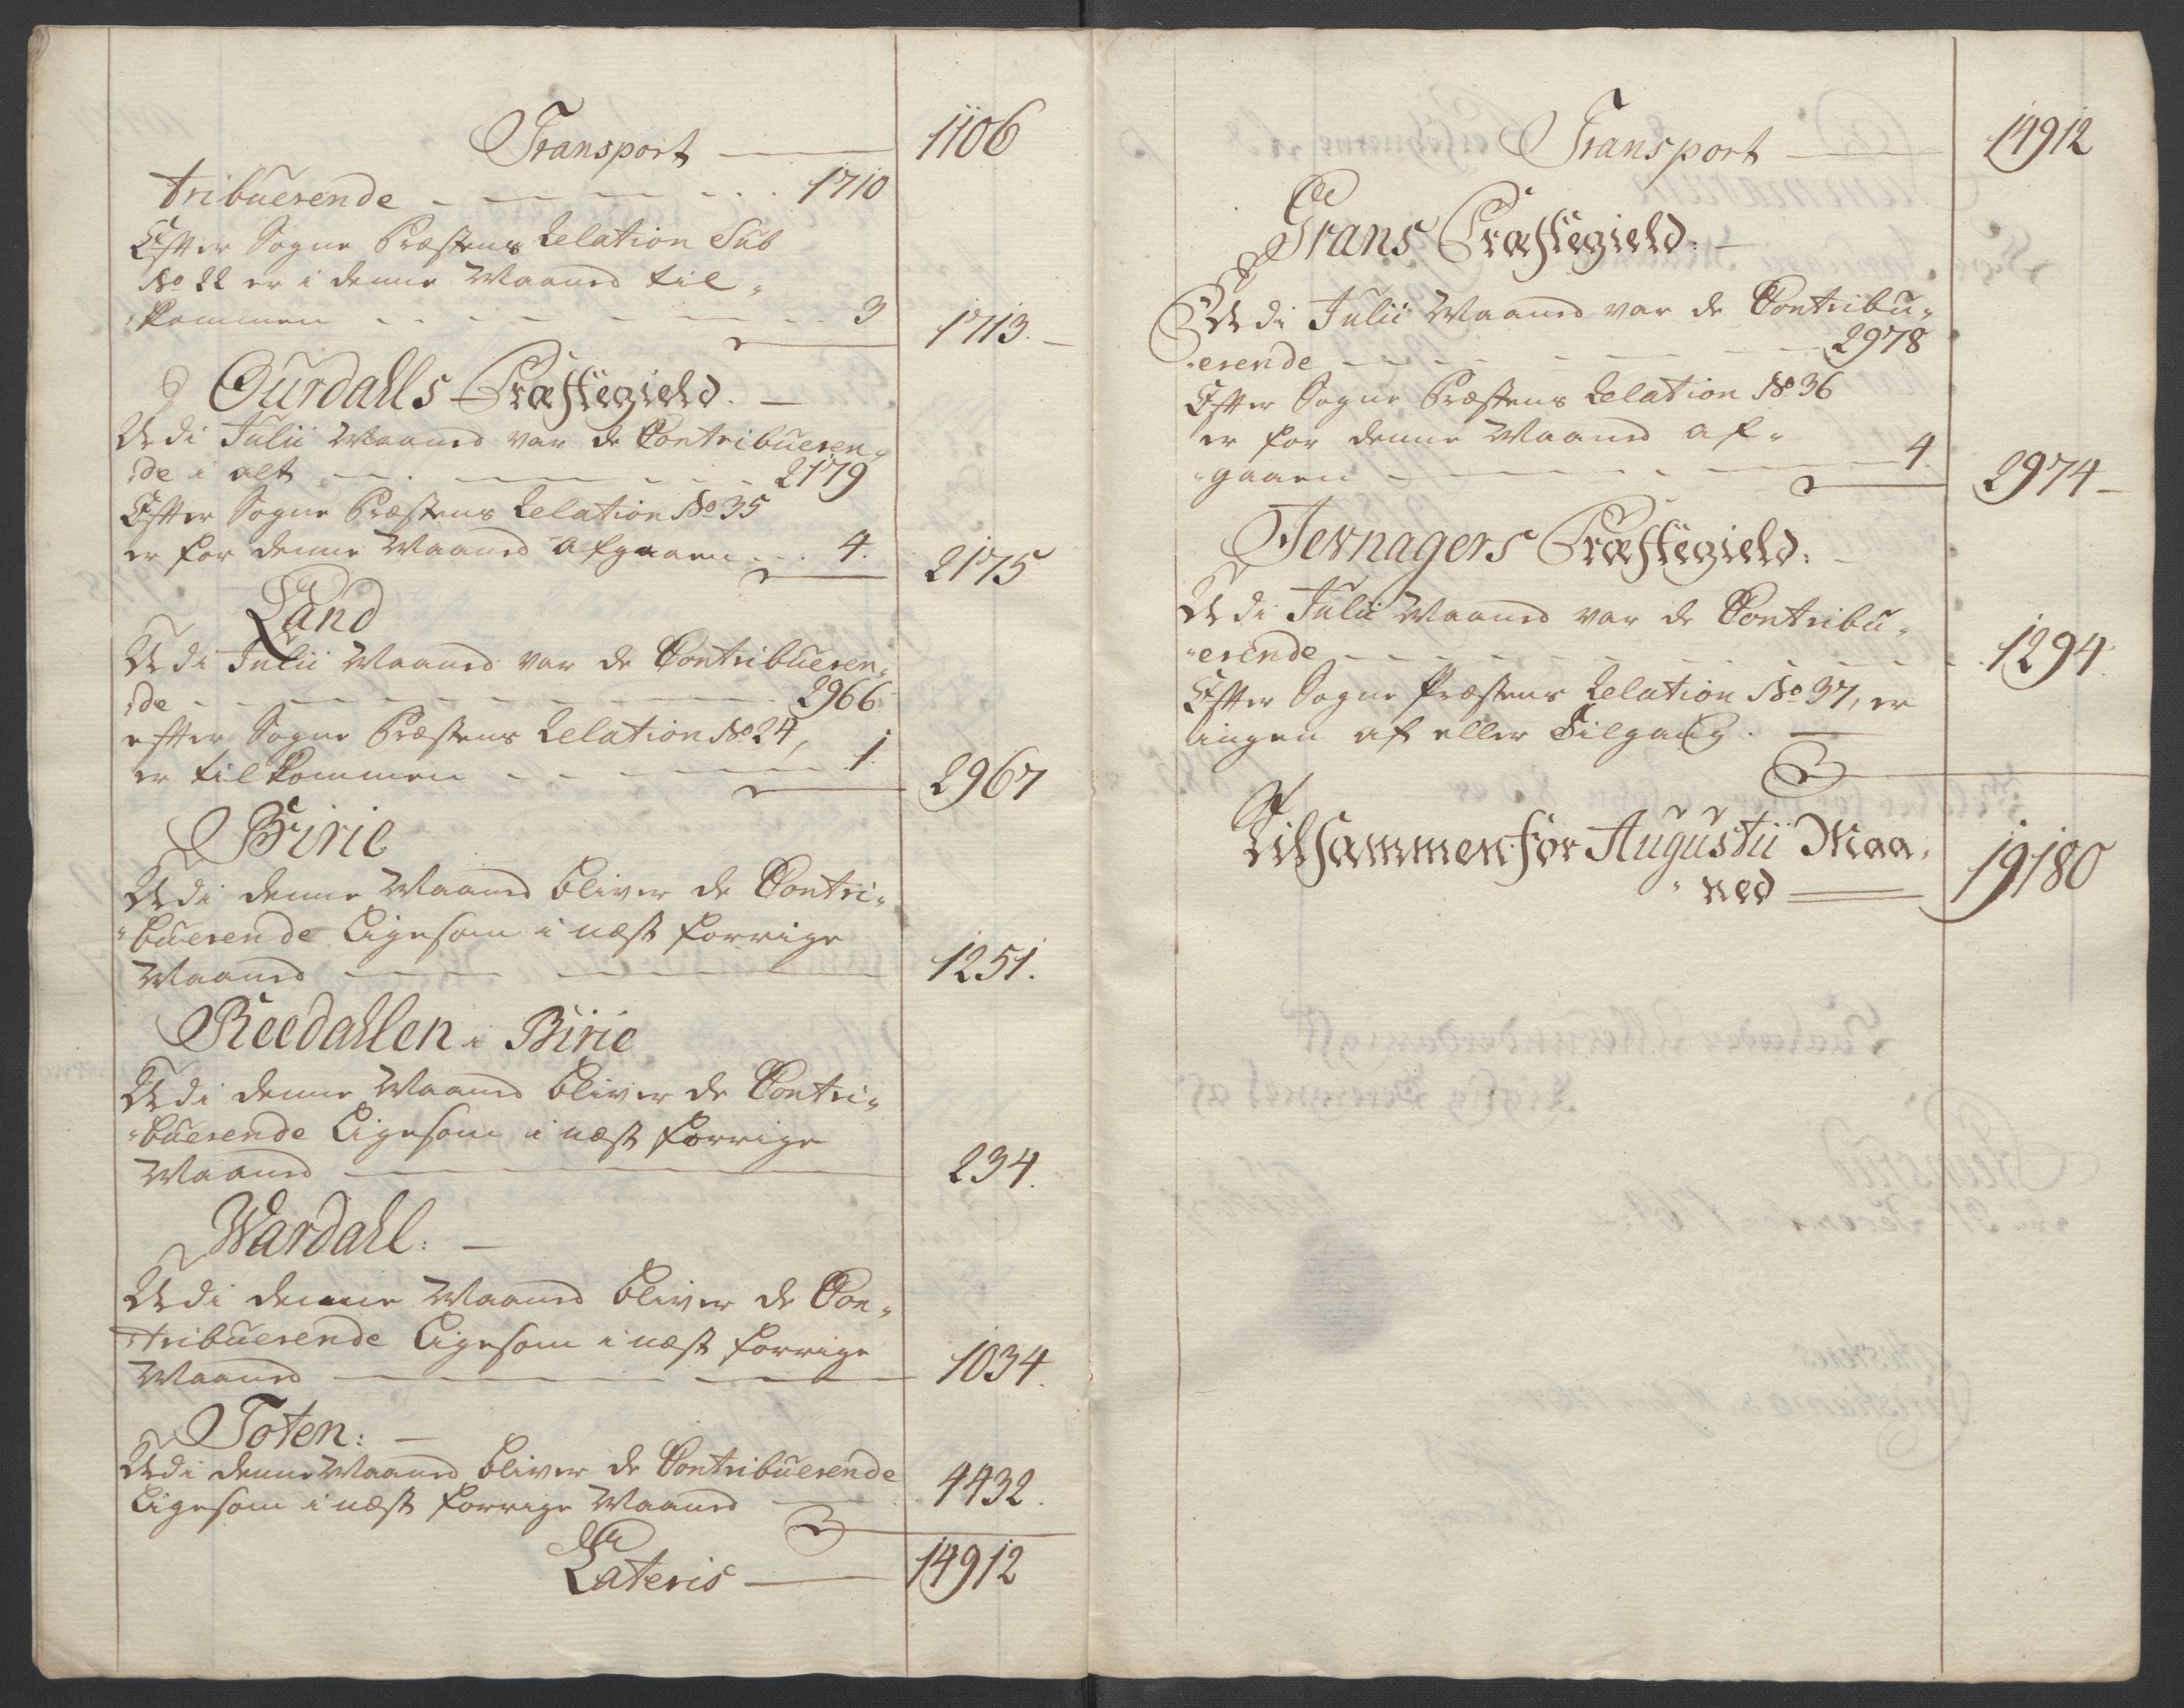 Transport — 1106
tribuerende — 1710
Efter Sogne Præstens Relation Sub
No 22 er i denne Maaned til„
„kommen — 3 1713. —
Ourdahls Præstegield. —
Udi Julii Maaned var de Contribueren„
„de i alt — 2179
Efter Sogne Præstens Relation No 35
er for denne Maaned afgaaen — 4. 2175
Land
Udi Julii Maaned var de Contribueren„
„de — 2966
efter Sogne Præstens Relation No 24,
er tilkommen — 1. 2967
Birie
Udi denne Maaned bliver de Contri„
„buerende ligesom i næst forrige
Maaned — 1251.
Reedahlen i Birie
Udi denne Maaned bliver de Contri„
„buerende ligesom i næst forrige
Maaned — 234.
Wardahl: —
Udi denne Maaned bliver de Con„
„tribuerende ligesom i næst forrige
Maaned — 1034.
Toten: —
Udi denne Maaned bliver de Contribuerende
ligesom i næst forrige Maaned — 4432.
Lateris — 14912
Transport — 14912
Grans Præstegield: —
Udi Julii Maaned var de Contribu„
„erende — 2978
Efter Sogne Præstens Relation No 36
er for denne Maaned af„
„gaaen — 4. 2974 —
Jevnagers Præstegield: —
Udi Julii Maaned var de Contribu„
„erende — 1294.
Efter Sogne Præstens Relation No 37, er
ingen af eller Tilgang. —
Tilsammen for Augustii Maa„
„ned — 19180